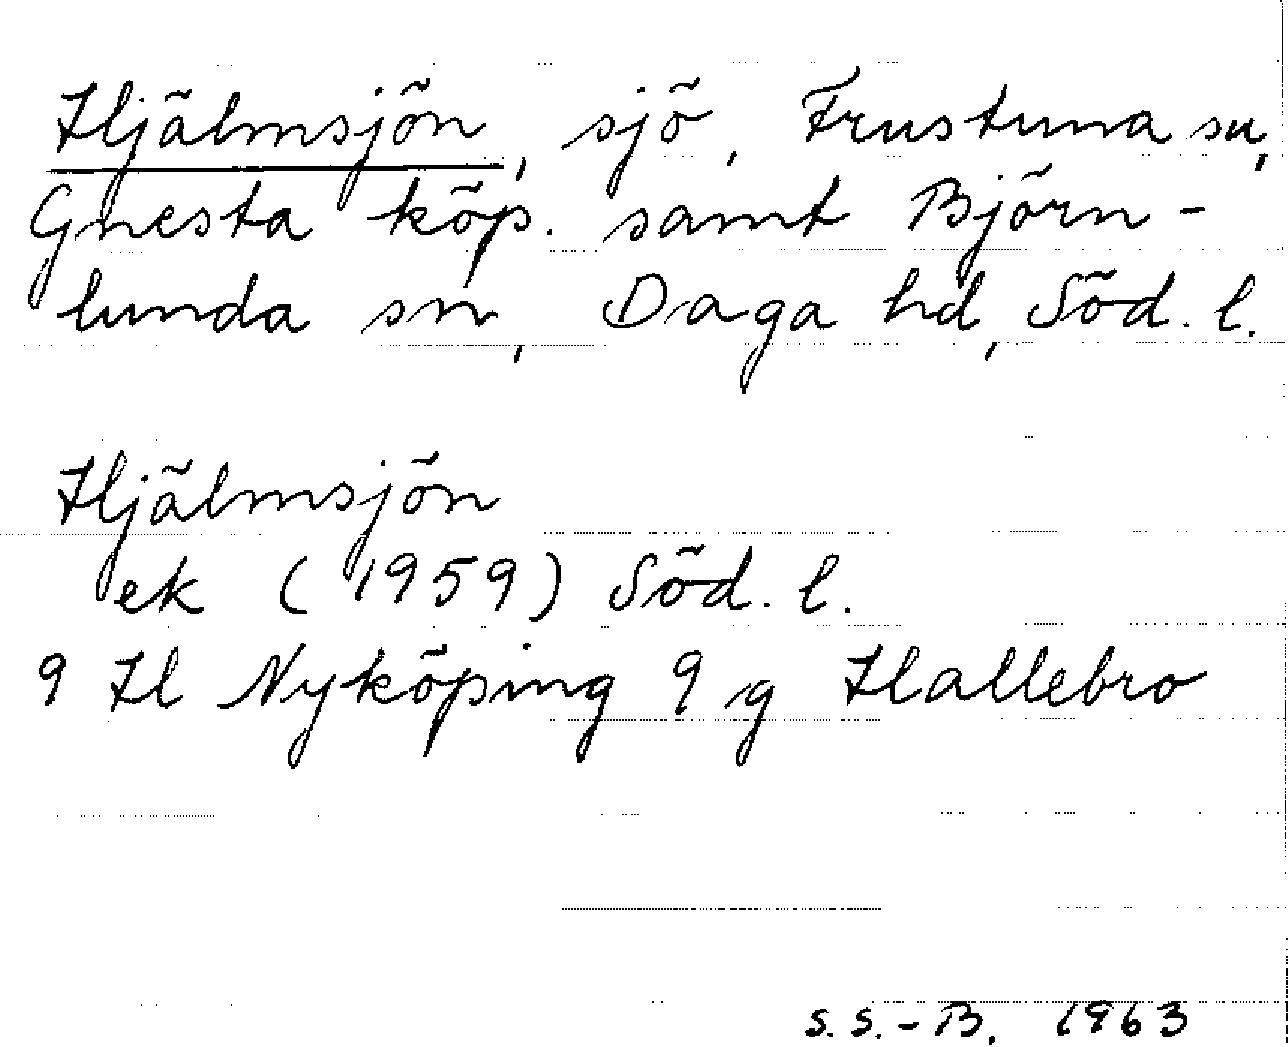 Hjälmsjön, sjö, Frustuna sn,
Gnesta köp. samt Björn-
lunda sn, Daga hd, Söd. l.
Hjälmsjön
ek (1959) Söd. l.
9 H Nyköping 9 g Hallebro
S. S.-B. 1963